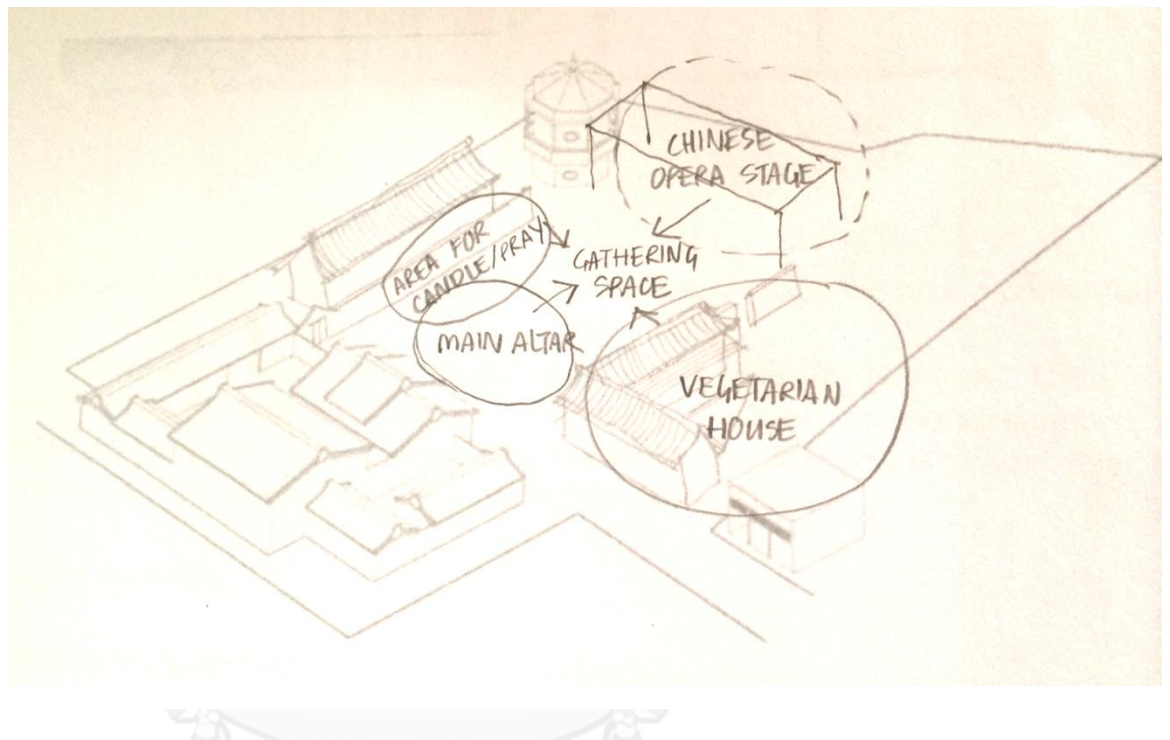 CHINESE
OPERA STAGE
AREA FOR
CANDLE/PRAY
GATHERING
SPACE
MAIN ALTAR
VEGETARIAN
HOUSE